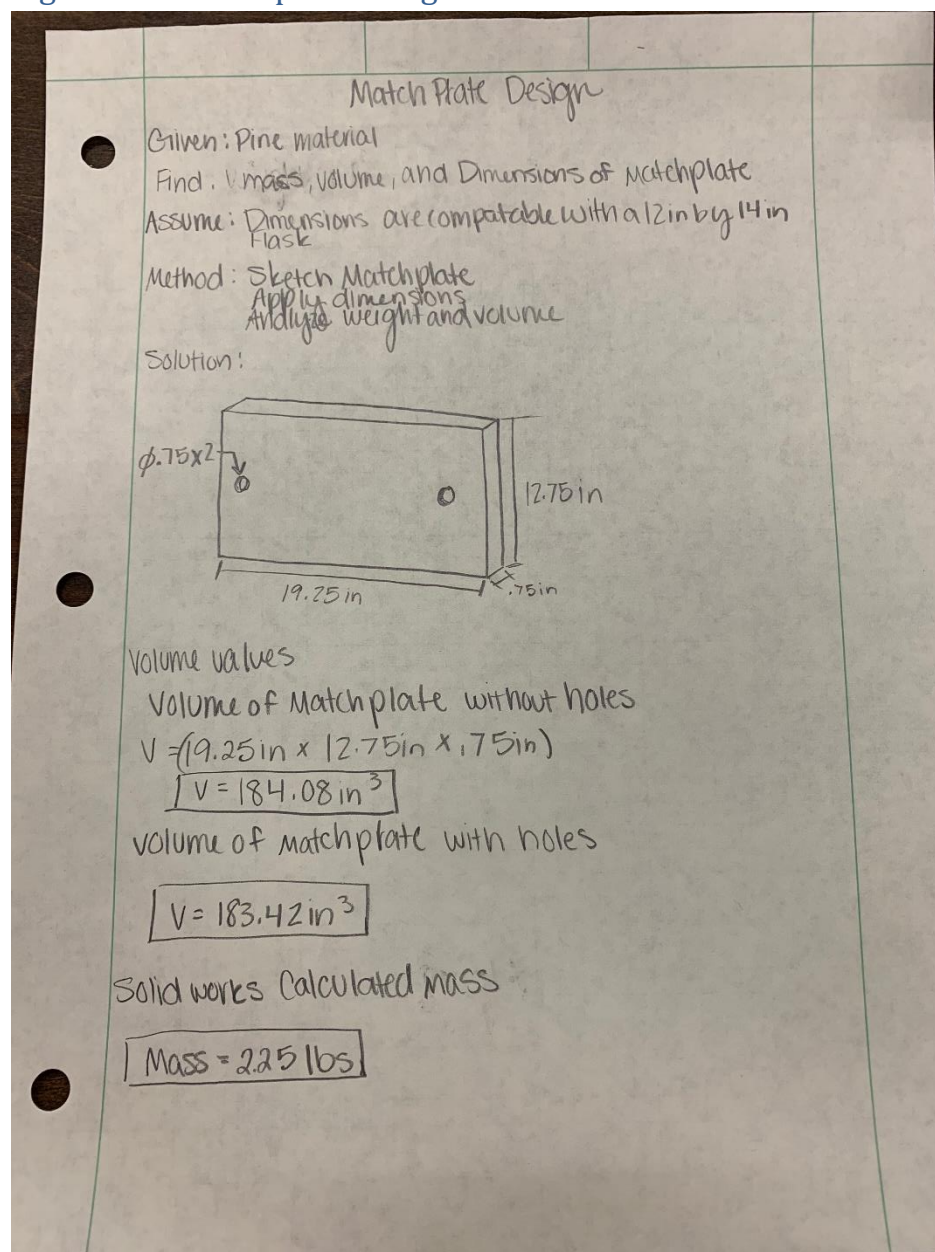 Match Plate Design
Given: Pine material
Find: mass, volume, and Dimensions of Matchplate
Assume: Dimensions are compatable with a 12in by 14in
Flask
Method: Sketch Matchplate
Apply dimensions
Analyze weight and volume
Solution:
ϕ.75x2
12.75in
19.25in
.75in
Volume values
Volume of Matchplate without holes
V =(19.25in x 12.75in x .75in)
V = 184.08in³
volume of matchplate with holes
V = 183.42in³
Solid works Calculated mass
Mass = 2.25 lbs